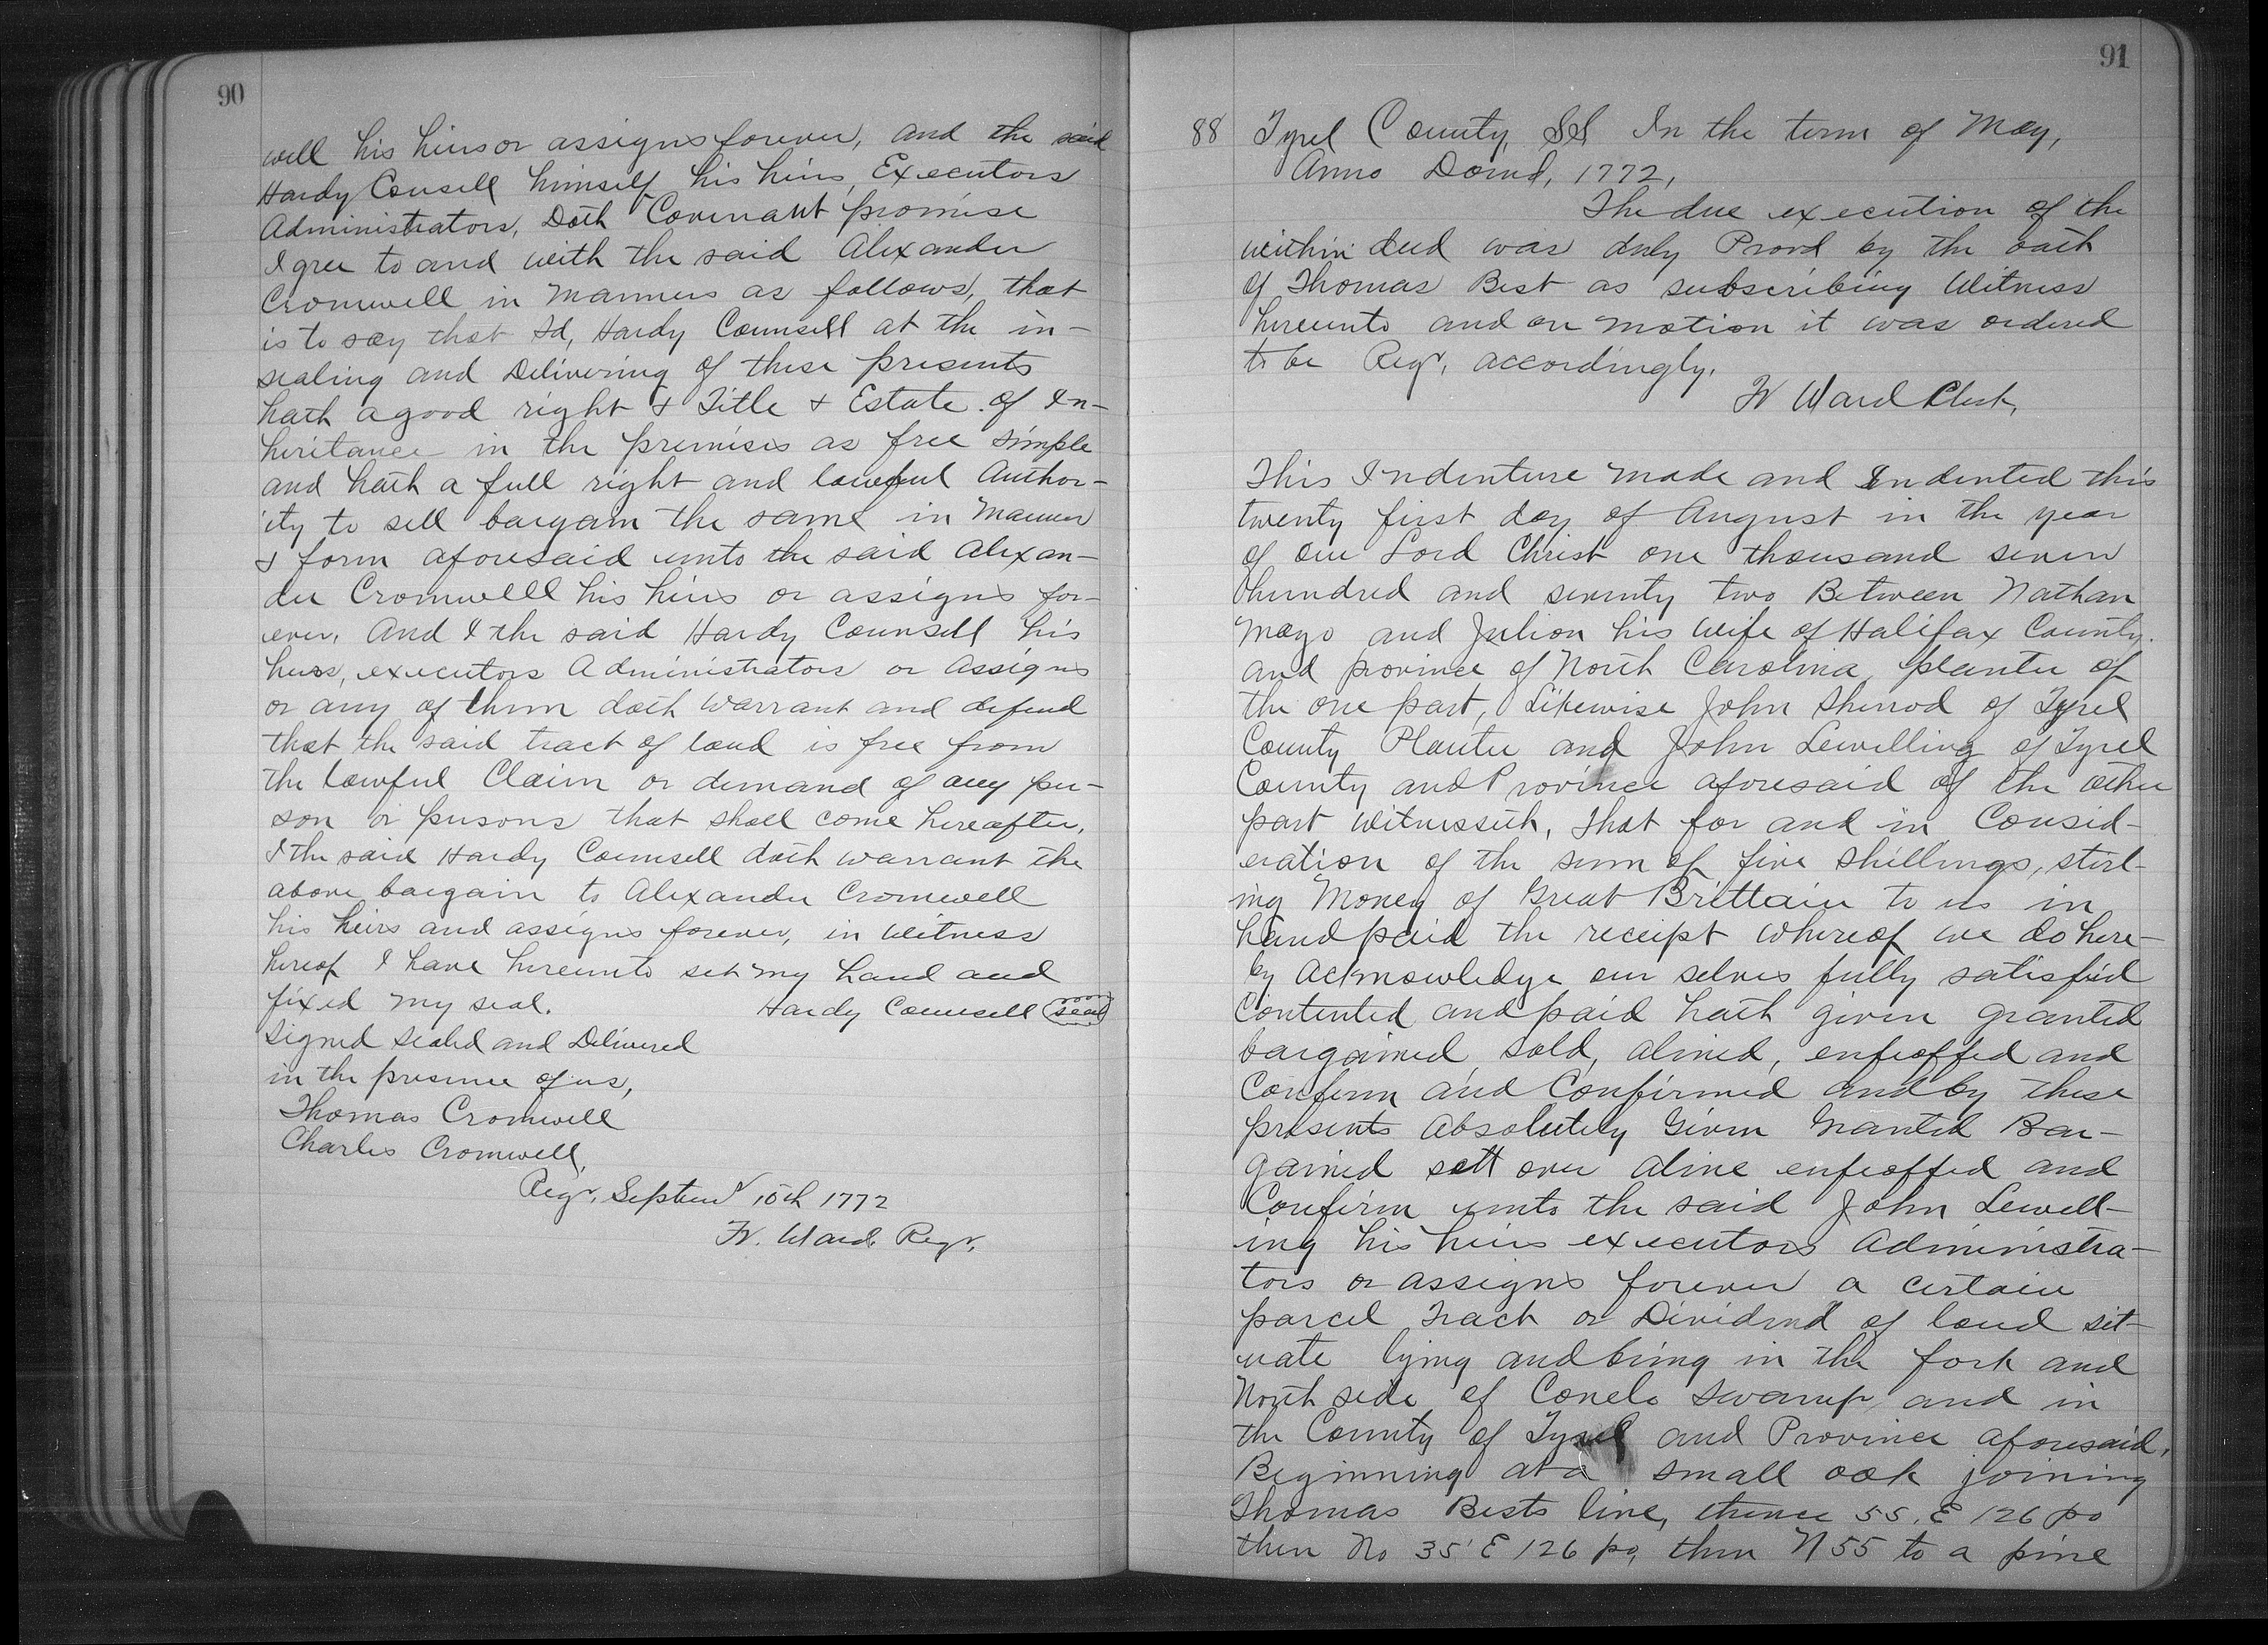 90
will his heirs or assigns forever, and the said
Hardy Consell himself his heirs, Executors
Administrators, Doth Covenant promise
& gree to and with the said Alixander
Cromwell in Manners as follows, that
is to say that Sd, Hardy Counsell at the in-
sealing and Delivering of these presents
hath a good right & Title & Estate of In-
heritance in the premises as free simple
and hath a full right and lawful Author-
ity to sell bargain the same in Manner
& form aforesaid unto the said Alixan-
der Cromwell his heirs or assigns for-
ever, And I the said Hardy Counsell his
heirs, executors Administrators or Assigns
or any of them doth warrant and defend
that the said tract of land is free from
the lawful Claim or demand of any per-
son or persons that shall come hereafter,
I the said Hardy Counsell doth warrant the
above bargain to Alixander Cromwell
his heirs and assigns forever, in Witness
hereof I have hereunto set my hand and
fixed my seal. Hardy Counsell seal
Signed Sealed and Delivered
in the presence of us,
Thomas Cromwell
Charles Cromwell,
Regr. Septemr 15th 1772
Fr. Ward Regr.
91
88 Tyrel County, SS In the term of May,
Anno Domd, 1772,
The due execution of the
within deed was duly Provd by the oath
of Thomas Best as subscribing Witness
hereunto and on motion it was ordered
to be Regr, accordingly.
Fr Ward Clerk,
This Indenture Made and Indented this
twenty first day of August in the year
of our Lord Christ one thousand seven
hundred and seventy two Between Nathan
Mayo and Julion his Wife of Halifax County.
and province of North Carolina, planter of
the one part, Likewise John Sherrod of Tyrel
County Planter and John Lewelling of Tyrel
County and Province aforesaid of the other
part Witnesseth, That for and in Consid-
eration of the sum of five Shillings, sterl-
ing Money of Great Brittain to us in
hand paid the receipt Whereof we do here-
by Acknowledge our selves fully satisfied
Contented and paid hath given granted
bargained, sold, aliened, enfeoffed and
Confirm and Confirmed and by these
presents Absolutely Given Granted Bar-
gained sett over aline enfeoffed and
Confirm unto the said John Lewell-
ing his heirs executors Administra-
tors or assigns forever a certain
parcel Tract or Dividend of land sit-
uate lying and being in the fork and
North side of Coneto Swamp and in
the County of Tyrel and Province aforesaid,
Beginning at a small oak joining
Thomas Bests line, thence 55. E 126 po
then No 35' E 126 po, then N 55 to a pine